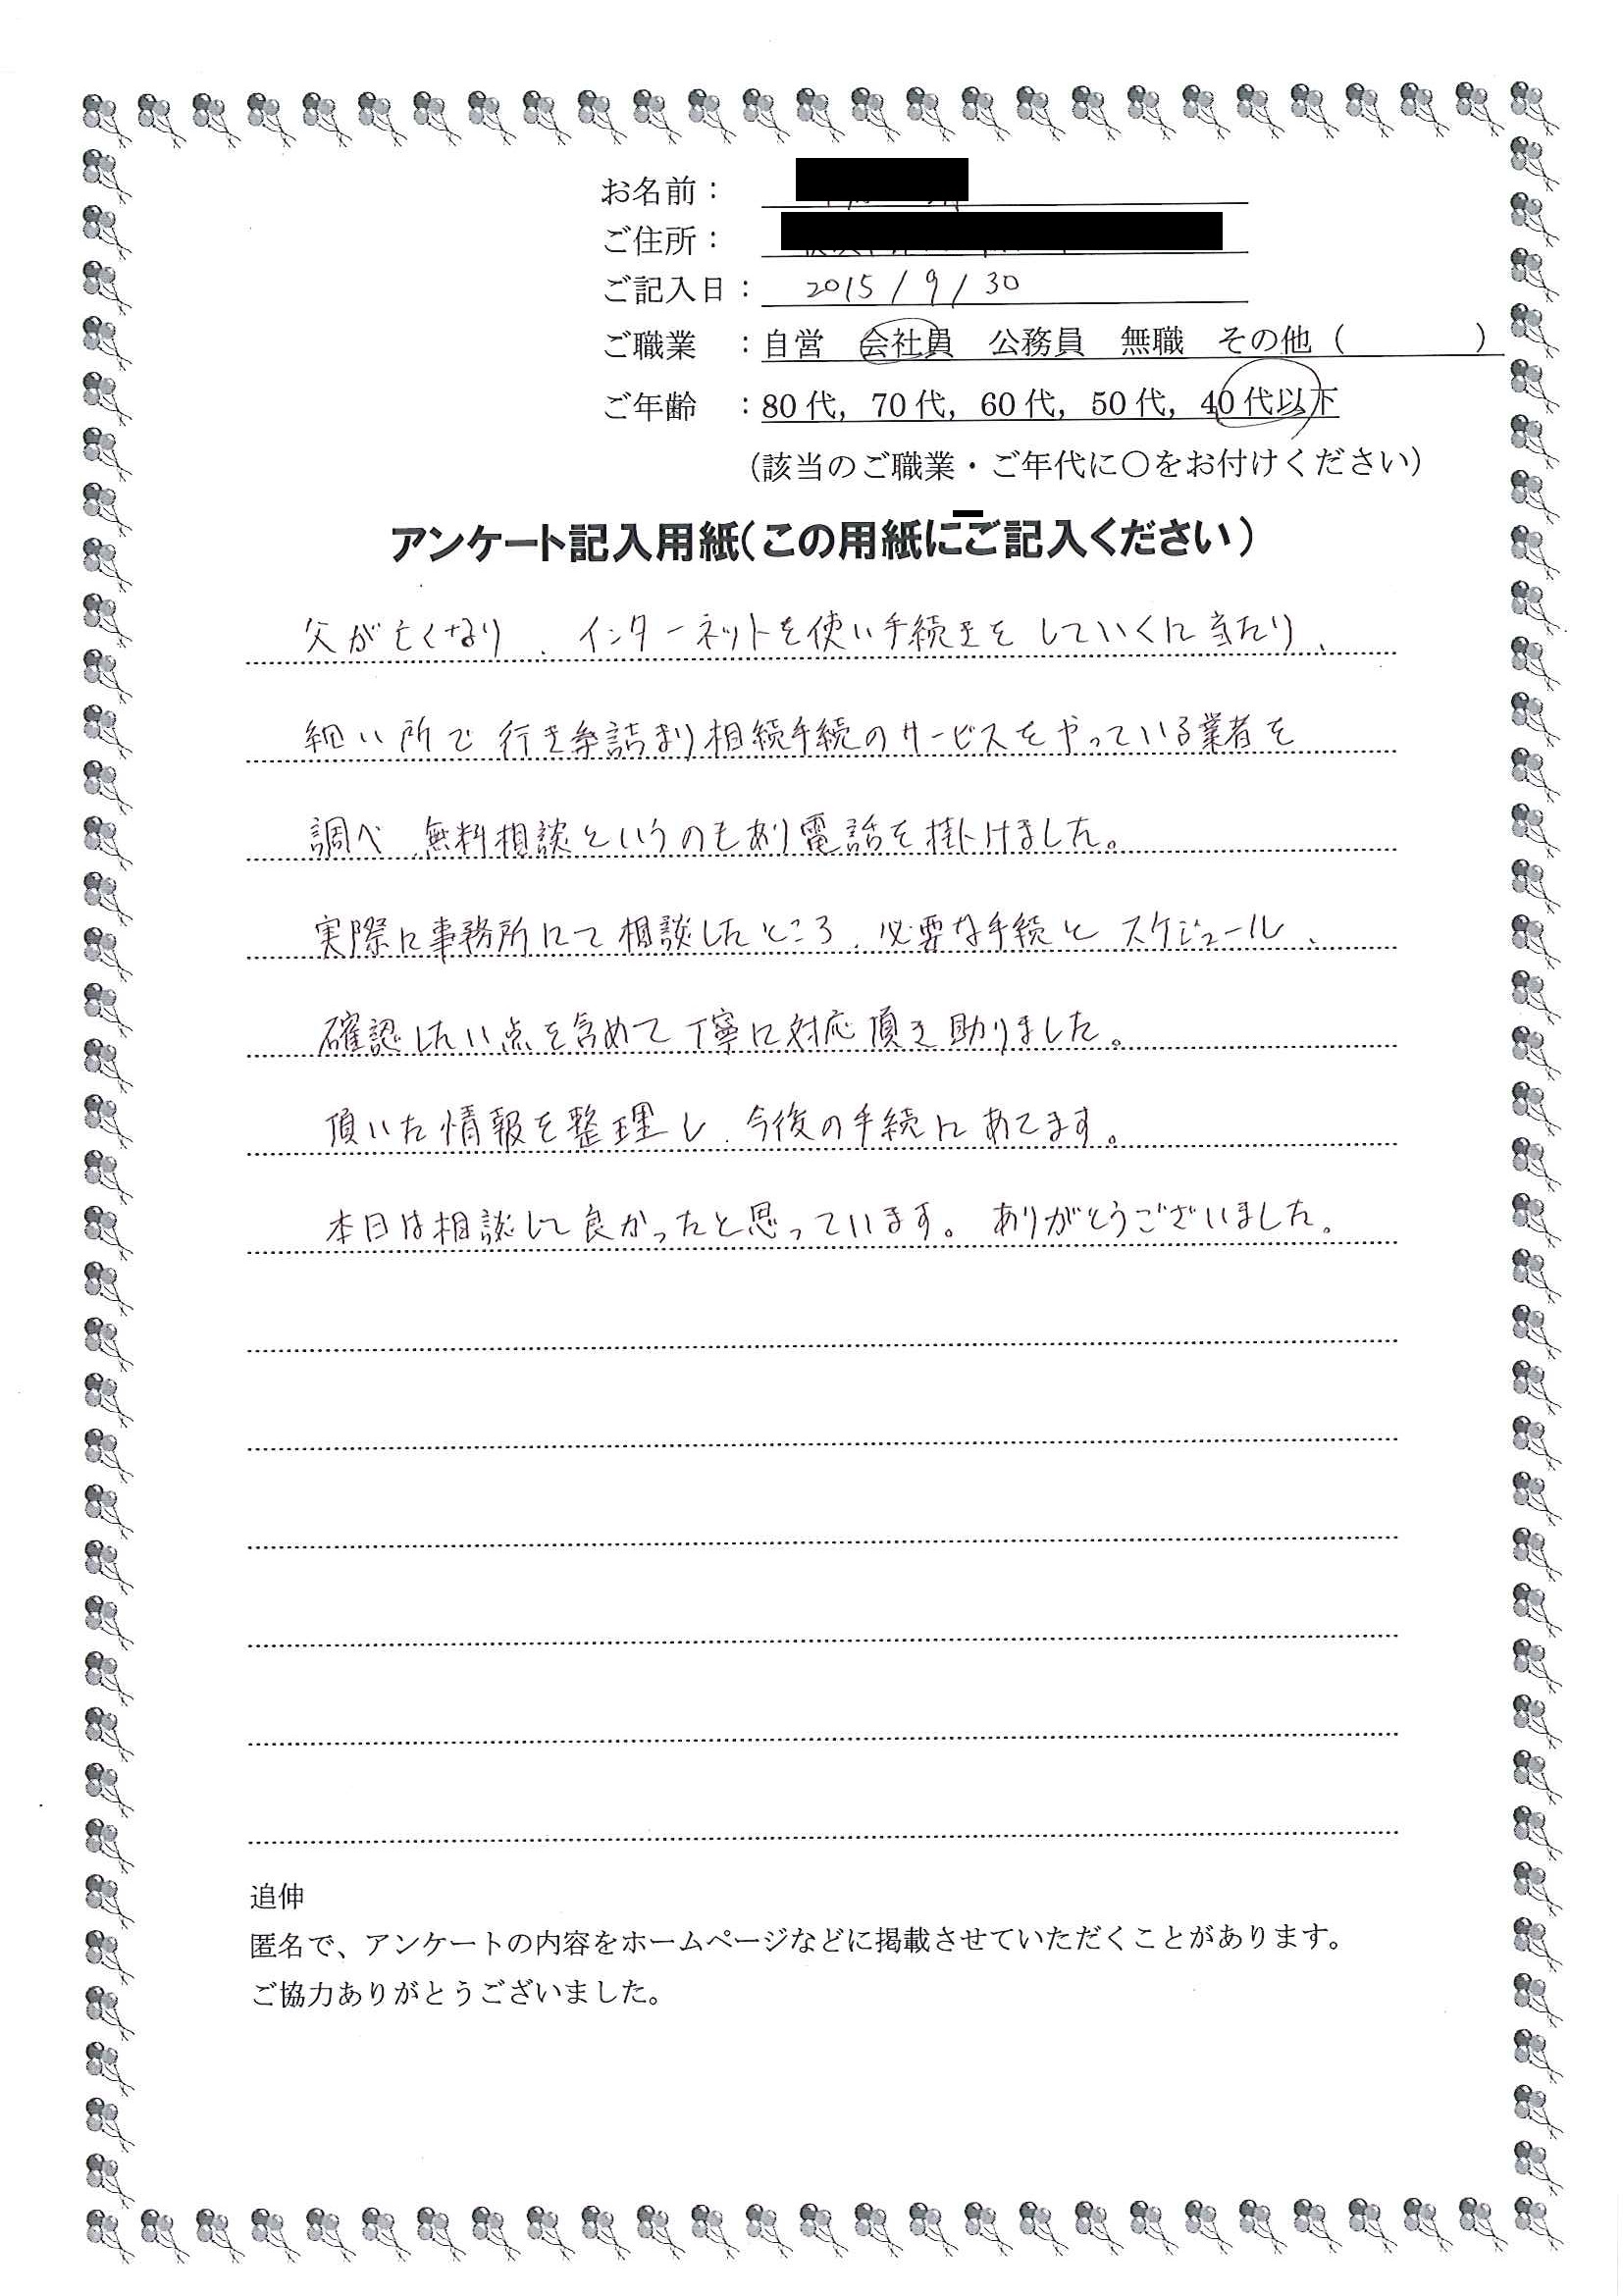 お名前：
ご住所：
ご記入日： 2015/9/30
ご職業 ：自営 会社員 公務員 無職 その他（ ）
ご年齢 ：80代，70代，60代，50代，40代以下
（該当のご職業・ご年代に〇をお付けください）
アンケート記入用紙（この用紙にご記入ください）
父が亡くなり、インターネットを使い手続きをしていくに当たり、
細い所で行き詰まり相続手続のサービスをやっている業者を
調べ、無料相談というのもあり電話を掛けました。
実際に事務所にて相談したところ、必要な手続とスケジュール、
確認したい点を含めて丁寧に対応頂き助りました。
頂いた情報を整理し、今後の手続にあてます。
本日は相談して良かったと思っています。ありがとうございました。
追伸
匿名で、アンケートの内容をホームページなどに掲載させていただくことがあります。
ご協力ありがとうございました。